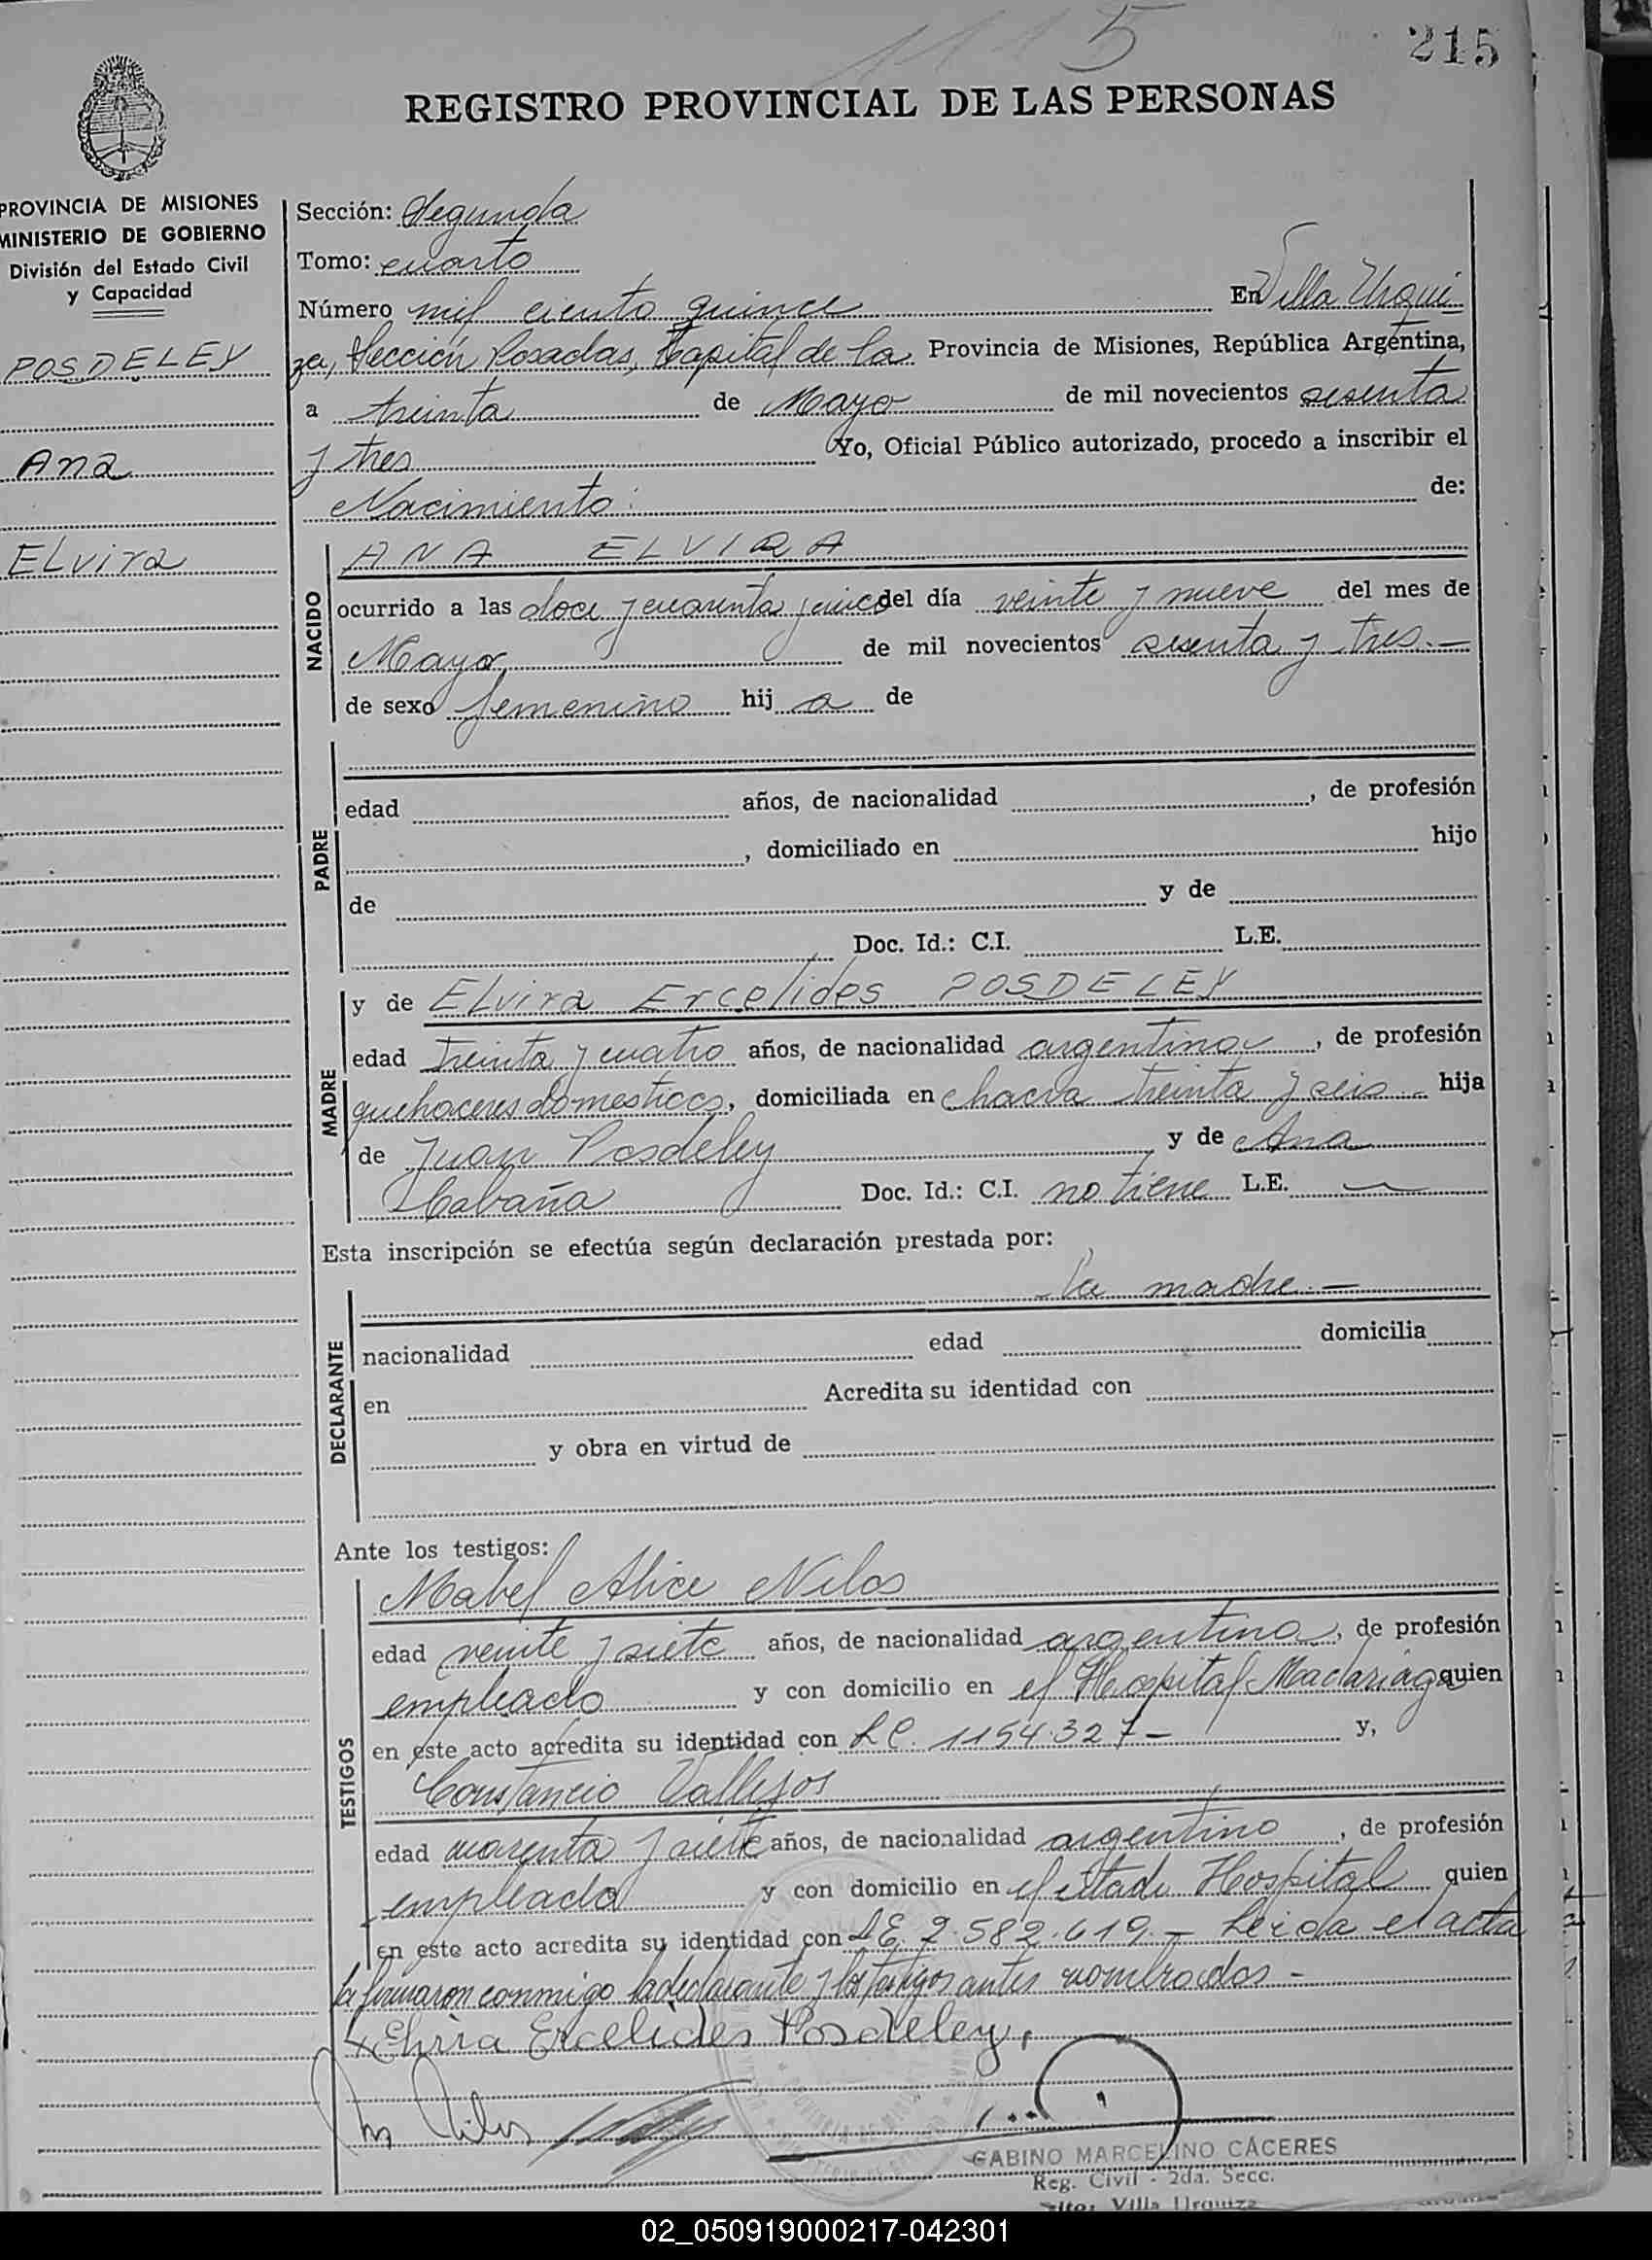 1115
215
REGISTRO PROVINCIAL DE LAS PERSONAS
PROVINCIA DE MISIONES
MINISTERIO DE GOBIERNO
División del Estado Civil
y Capacidad
POSDELEY
Ana
ELvira
Sección: Segunda
Tomo: cuarto
Número mil ciento quince En Villa Urqui
za, Sección Posadas, Capital de la Provincia de Misiones, República Argentina,
a treinta de Mayo de mil novecientos sesenta
y tres Yo, Oficial Público autorizado, procedo a inscribir el
Nacimiento: de:
NACIDO
ANA ELVIRA
ocurrido a las doce y cuarenta y cinco del día veinte y nueve del mes de
Mayo, de mil novecientos sesenta y tres.—
de sexo femenino hij a de
PADRE
edad años, de nacionalidad , de profesión
, domiciliado en hijo
de y de
Doc. Id.: C.I. L.E.
MADRE
y de ELvira Ercelides POSDELEY
edad treinta y cuatro años, de nacionalidad argentina, de profesión
quehaceres domesticos, domiciliada en chacra treinta y seis hija
de Juan Posdeley y de Ana
Cabaña Doc. Id.: C.I. no tiene L.E. —
Esta inscripción se efectúa según declaración prestada por:
la madre.—
DECLARANTE
nacionalidad edad domicilia
en Acredita su identidad con
y obra en virtud de
Ante los testigos:
TESTIGOS
Mabel Alice Nilos
edad veinte y siete años, de nacionalidad argentina, de profesión
empleado y con domicilio en el Hospital Madariaga quien
en este acto acredita su identidad con L.C. 1154.327— y,
Constancio Vallejos
edad cuarenta y siete años, de nacionalidad argentino, de profesión
empleado y con domicilio en el citado Hospital quien
en este acto acredita su identidad con L.E. 2.582.619.— Leida el acta
la firmaron conmigo la declarante y los testigos antes nombrados—
x Elvira Ercelides Posdeley.
GABINO MARCELINO CACERES
Reg. Civil - 2da. Secc.
Villa Urquiza
02_050919000217-042301